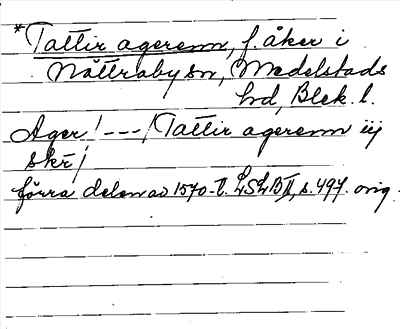 *Tattir agerenn, f. åker i
Nättraby sn, Medelstads
hd, Blek. l.
Ager! ---/Tattir agerenn iij
skr/
förra delen av 1570-t. LSLB II, s. 497. orig.